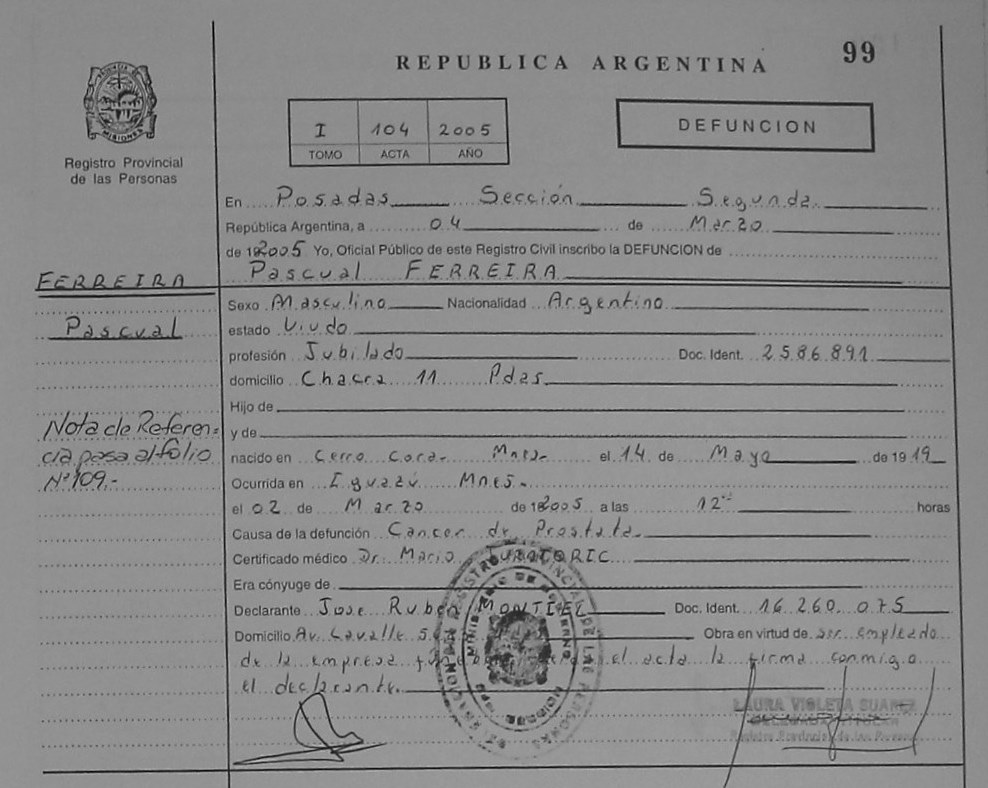 99
REPUBLICA ARGENTINA
PROVINCIA DE MISIONES
Registro Provincial
de las Personas
I 104 2005
TOMO ACTA AÑO
DEFUNCION
En Posadas Sección Segunda
República Argentina, a 04 de Marzo
de 2005 Yo, Oficial Público de este Registro Civil inscribo la DEFUNCION de
Pascual FERREIRA
FERREIRA
Pascual
Nota de Referen=
cia pasa al folio
Nº 109.-
Sexo Masculino Nacionalidad Argentino
estado Viudo
profesión Jubilado Doc. Ident. 2.586.891
domicilio Chacra 11 Pdas
Hijo de
y de
nacido en Cerro Cora- Mnes- el 14 de Mayo de 1919
Ocurrida en Iguazú Mnes-
el 02 de Marzo de 2005 a las 12 horas
Causa de la defunción Cancer de Prostata
Certificado médico Dr. Mario
Era cónyuge de
Declarante Jose Ruben MONTIEL Doc. Ident. 16.260.075
Domicilio Av. Lavalle Obra en virtud de ser empleado
de la empresa el acta la firma conmigo
el declarante.
LAURA VIOLETA SUAREZ
DELEGADA TITULAR
Registro Provincial de las Personas